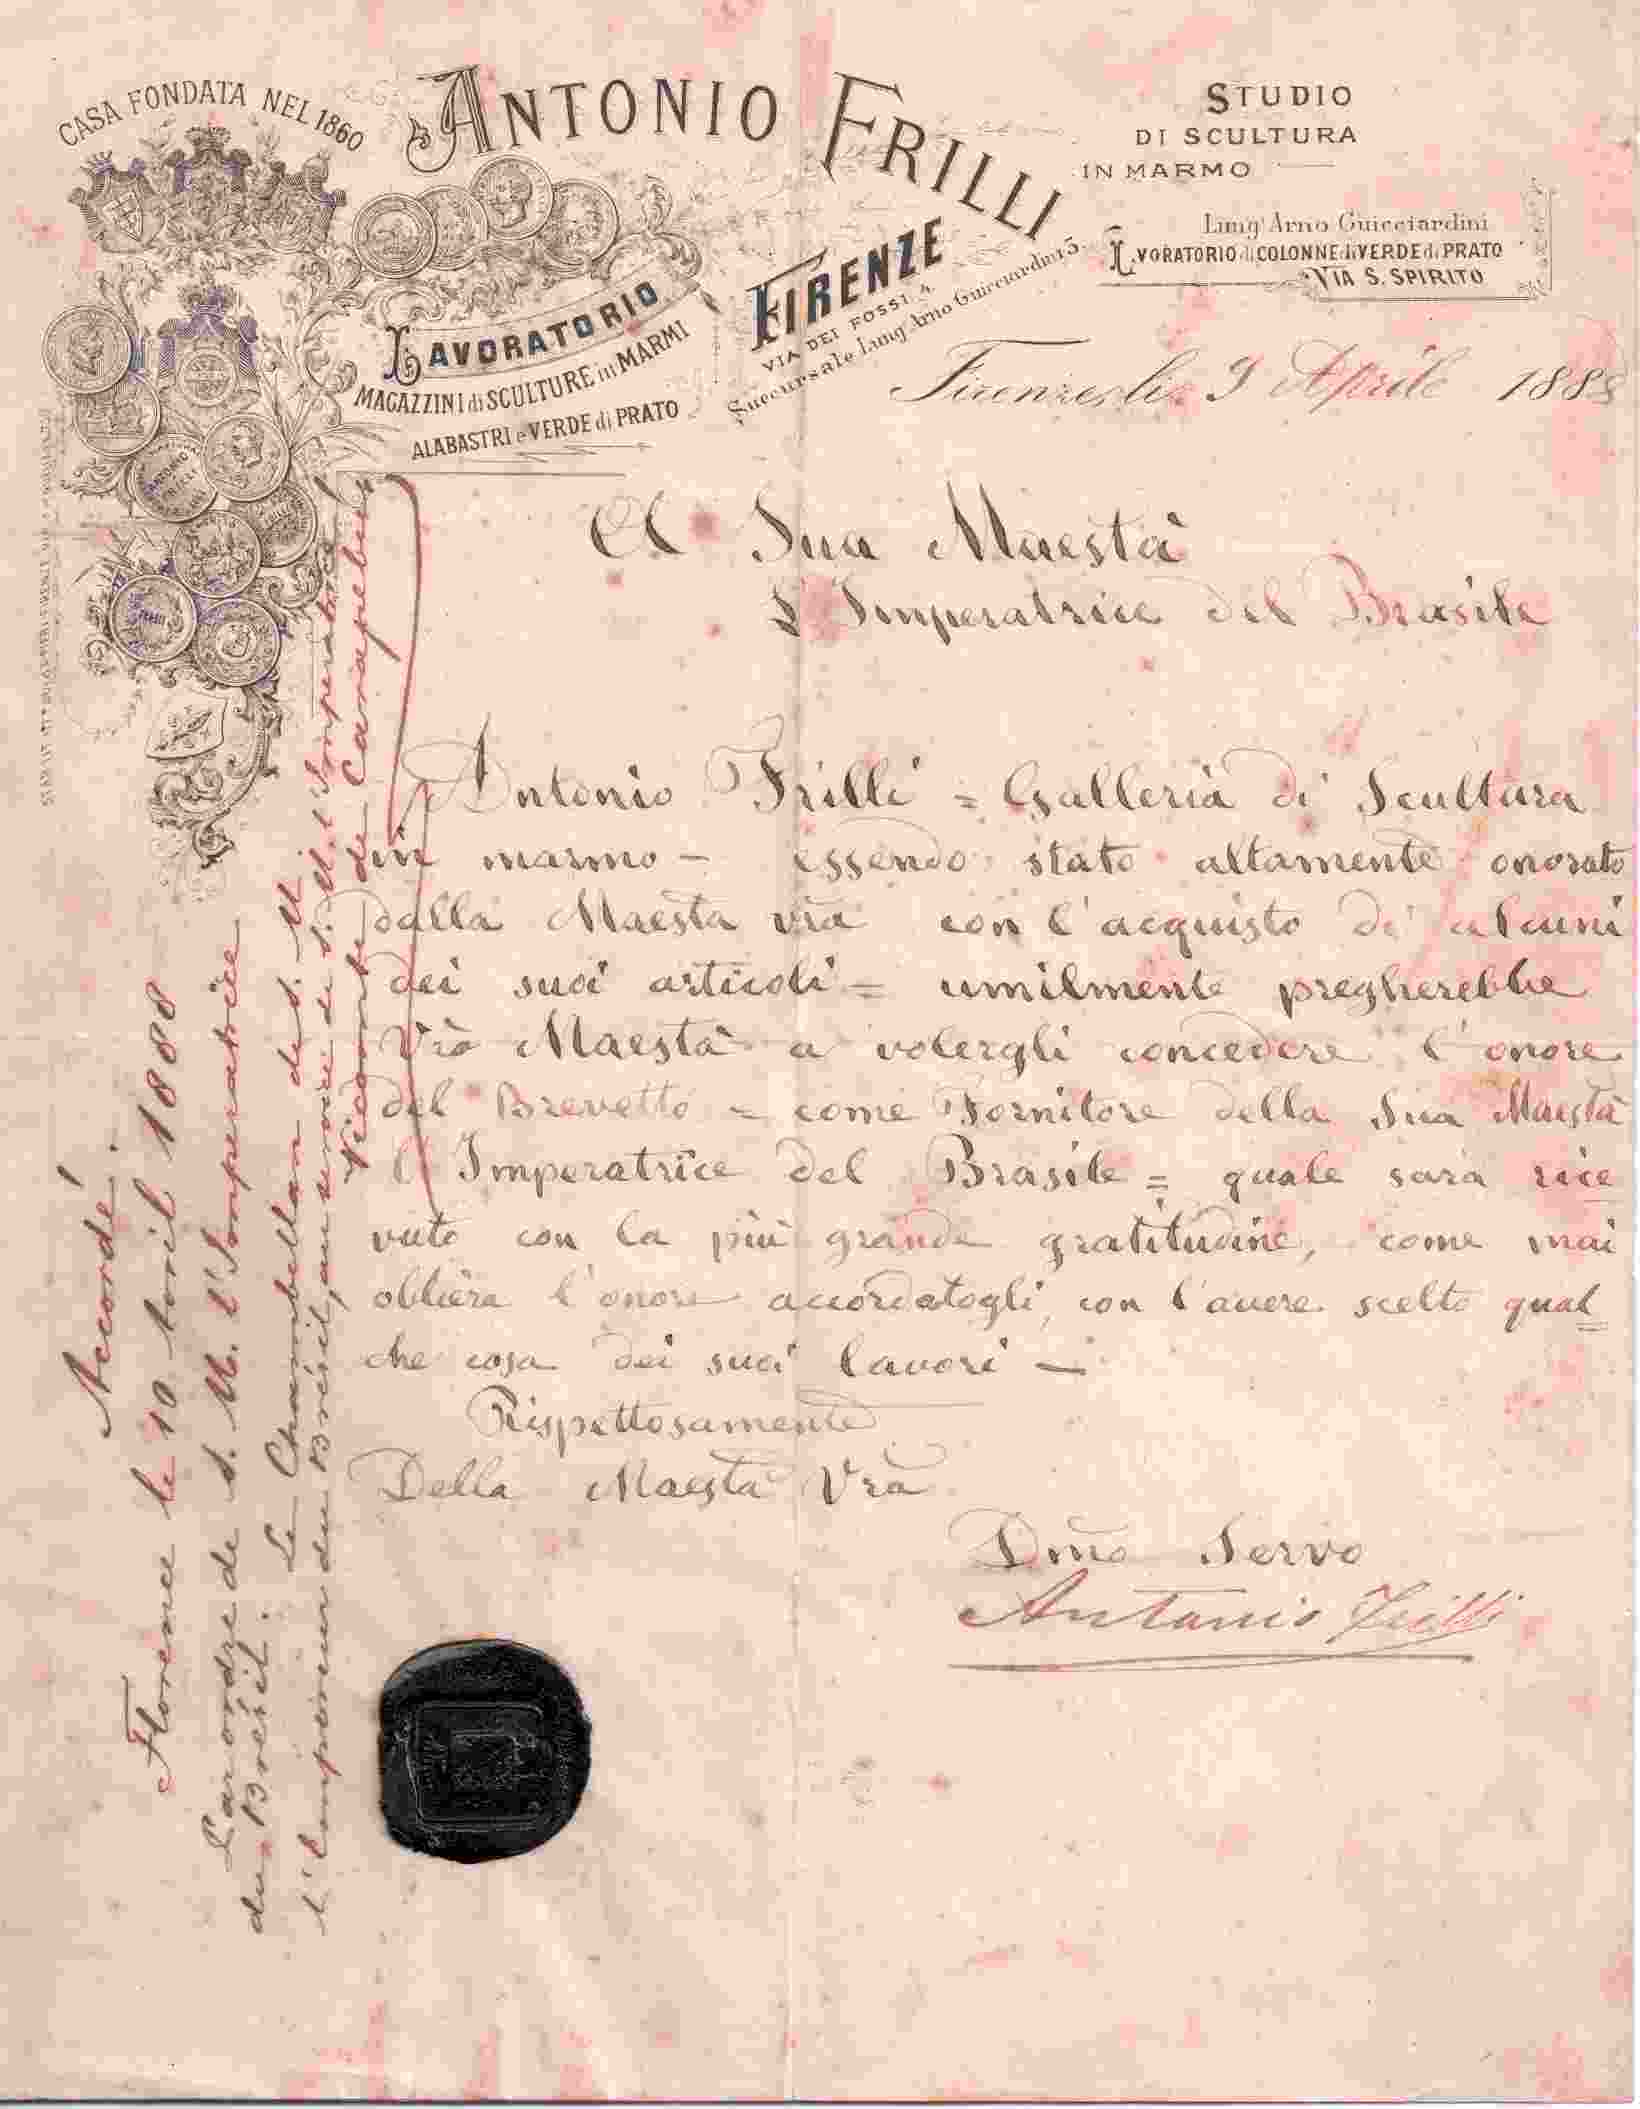 CASA FONDATA NEL 1860
ANTONIO FRILLI
FIRENZE
VIA DEI FOSSI. 4.
Succursale Lung'Arno Guicciardini 15
LAVORATORIO
MAGAZZINI di SCULTURE in MARMI
ALABASTRI e VERDE di PRATO
STUDIO
DI SCULTURA
IN MARMO
Lung'Arno Guicciardini
LVORATORIO di COLONNE di VERDE di PRATO
VIA S. SPIRITO
Firenze, li 9 Aprile 1888
A Sua Maestà
L'Imperatrice del Brasile
Antonio Frilli = Galleria di Scultura
in marmo - essendo stato altamente onorato
dalla Maestà Vrа con l'acquisto di alcuni
dei suoi articoli = umilmente pregherebbe
Vrа Maestà a volergli concedere l'onore
del Brevetto = come Fornitore della Sua Maestà
l'Imperatrice del Brasile = quale sarà rice
vuto con la più grande gratitudine, come mai
oblierà l'onore accordatogli, con l'avere scelto qual
che cosa dei suoi lavori -
Rispettosamente
Della Maestà Vrа
Dmо Servo
Antonio Frilli
Accordé.
Florence le 10 Avril 1888
Par ordre de S. M. l'Impératrice
du Brésil.
Le Chambellan de S. M.
l'Empereur du Brésil, au service de S. M. l'Impératrice
Vicomte de